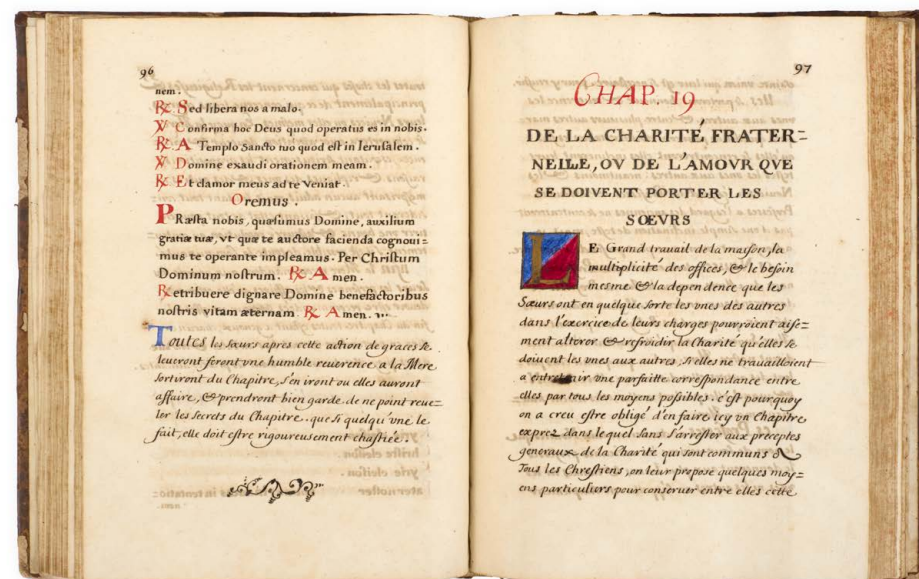 96
nem.
℟ Sed libera nos a malo.
℣ Confirma hoc Deus quod operatus es in nobis.
℟ A Templo Sancto tuo quod est in Ierusalem.
℣ Domine exaudi orationem meam.
℟ Et clamor meus ad te Veniat.
Oremus.
PRæsta nobis, quæsumus Domine, auxilium
gratiæ tuæ, vt quæ te auctore facienda cognoui=
mus te operante impleamus. Per Christum
Dominum nostrum. ℟ Amen.
Retribuere dignare Domine benefactoribus
nostris vitam æternam. ℟ Amen.
Toutes les sœurs apres cette action de graces se
leueront feront vne humble reuerence a la Mere
sortiront du Chapitre, s'en iront ou elles auront
affaire, & prendront bien garde de ne point reue=
ler les secrets du Chapitre. que si quelqu'vne le
fait, elle doit estre rigoureusement chastiée.
97
CHAP. 19
DE LA CHARITÉ FRATER=
NELLE, OV DE L'AMOVR QVE
SE DOIVENT PORTER LES
SŒVRS
LE Grand trauail de la maison, la
multiplicité des offices, & le besoin
mesme & la dependence que les
Sœurs ont en quelque sorte les vnes des autres
dans l'exercice de leurs charges pourroient aise=
ment alterer & refroidir la Charité qu'elles se
doiuent les vnes aux autres, si elles ne trauailloient
a entretenir vne parfaitte correspondance entre
elles par tous les moyens possibles. c'est pourquoy
on a creu estre obligé d'en faire icy vn Chapitre
exprez dans lequel sans s'arrester aux preceptes
generaux de la Charité qui sont communs a
Tous les Chrestiens, on leur propose quelques moy=
ens particuliers pour conseruer entre elles cette